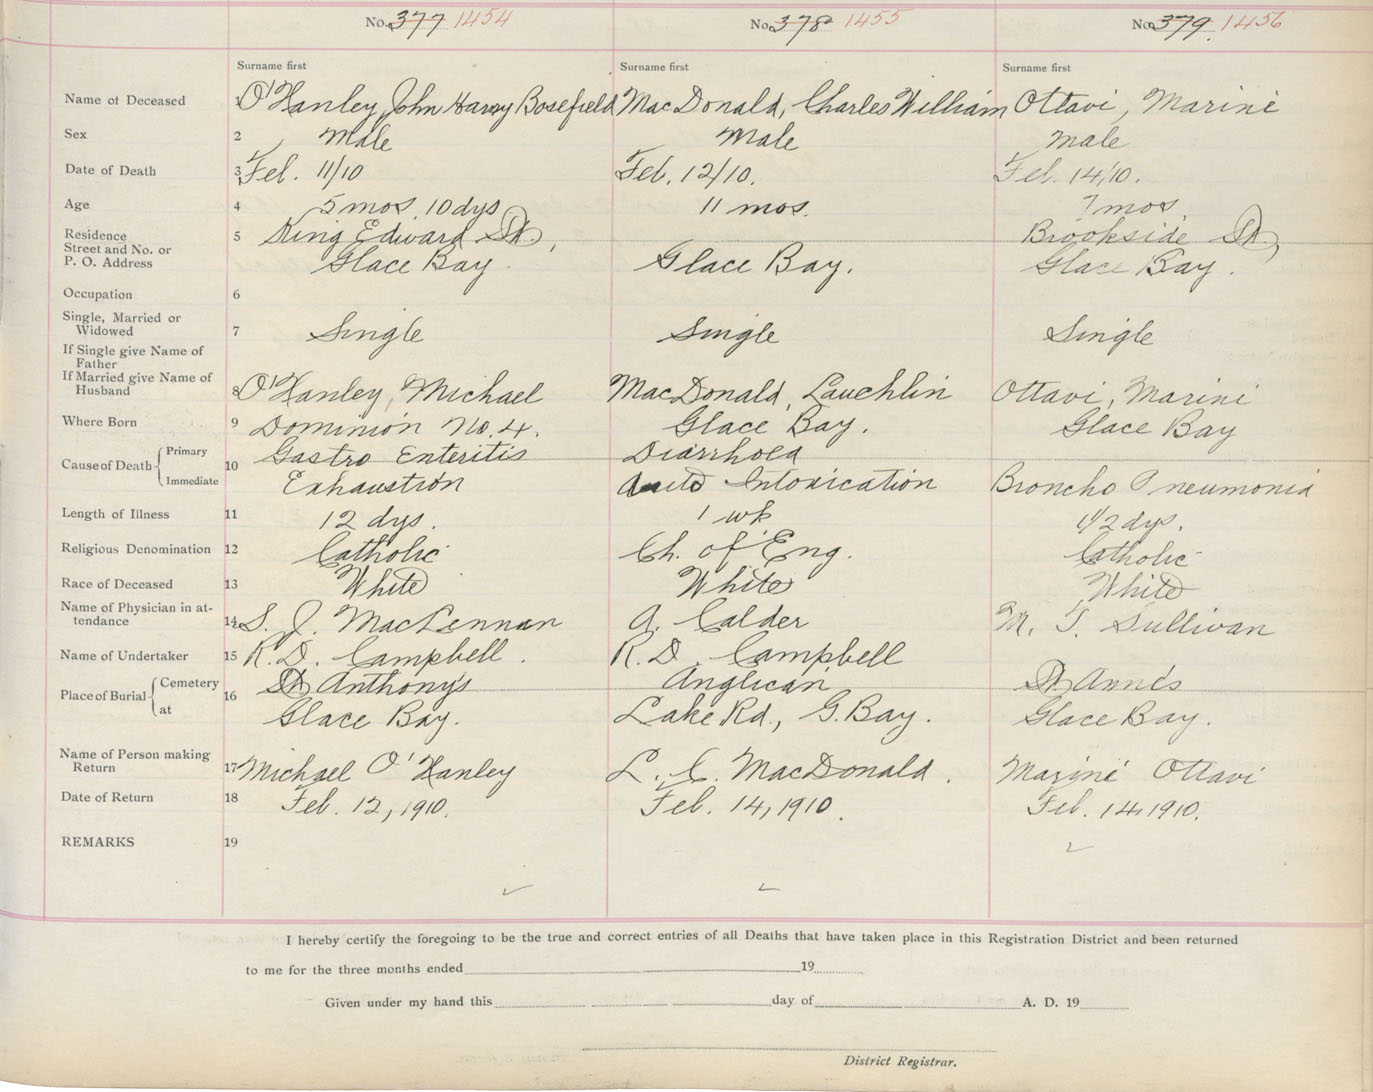 No. 377 1454 No. 378 1455 No. 379 1456
Surname first Surname first Surname first
Name of Deceased 1 O'Hanley, John Harvey Bosefield MacDonald, Charles William Ottavi, Marini
Sex 2 Male Male Male
Date of Death 3 Feb. 11/10 Feb. 12/10. Feb. 14/10.
Age 4 5 mos. 10 dys 11 mos. 7 mos
Residence 5 King Edward St., Brookside St.,
Street and No. or
P. O. Address Glace Bay. Glace Bay. Glace Bay.
Occupation 6
Single, Married or
Widowed 7 Single Single Single
If Single give Name of
Father
If Married give Name of
Husband 8 O'Hanley, Michael MacDonald, Lauchlin Ottavi, Marini
Where Born 9 Dominion No. 4. Glace Bay. Glace Bay
Cause of Death 10 Primary Gastro Enteritis Diarrhoea
Immediate Exhaustion Auto Intoxication Broncho Pneumonia
Length of Illness 11 12 dys. 1 wk 12 dys.
Religious Denomination 12 Catholic Ch. of Eng. Catholic
Race of Deceased 13 White White White
Name of Physician in at-
tendance 14 S. J. MacLennan A. Calder M. T. Sullivan
Name of Undertaker 15 R. D. Campbell. R. D. Campbell
Place of Burial 16 Cemetery St. Anthony's Anglican St. Anne's
at Glace Bay. Lake Rd., G. Bay. Glace Bay.
Name of Person making
Return 17 Michael O'Hanley L. C. MacDonald. Marini Ottavi
Date of Return 18 Feb. 12, 1910. Feb. 14, 1910. Feb. 14, 1910.
REMARKS 19
I hereby certify the foregoing to be the true and correct entries of all Deaths that have taken place in this Registration District and been returned
to me for the three months ended 19
Given under my hand this day of A. D. 19
District Registrar.